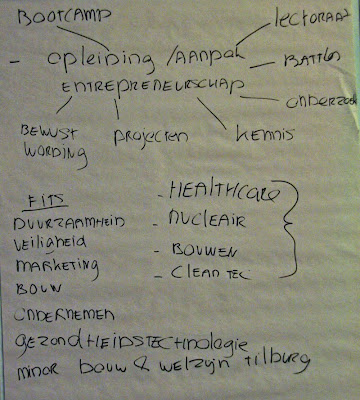 BOOTCAMP
LECTORAAT
- OPLEIDING / AANPAK
BATTLES
ENTREPRENEURSCHAP
ONDERZOEK
BEWUST
WORDING
PROJECTEN
KENNIS
FITS
- HEALTHCARE
DUURZAAMHEID
- NUCLEAIR
VEILIGHEID
- BOUWEN
MARKETING
- CLEAN TEC
BOUW
ONDERNEMEN
GEZONDHEIDSTECHNOLOGIE
MINOR BOUW & WELZIJN TILBURG